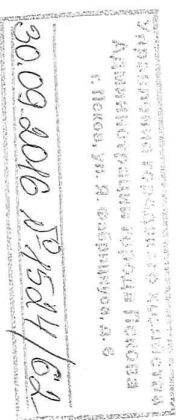 Управление городского хозяйства
Администрации города Пскова
г. Псков, ул. Я. Фабрициуса, д. 6
30.09.2016 № 1524/62